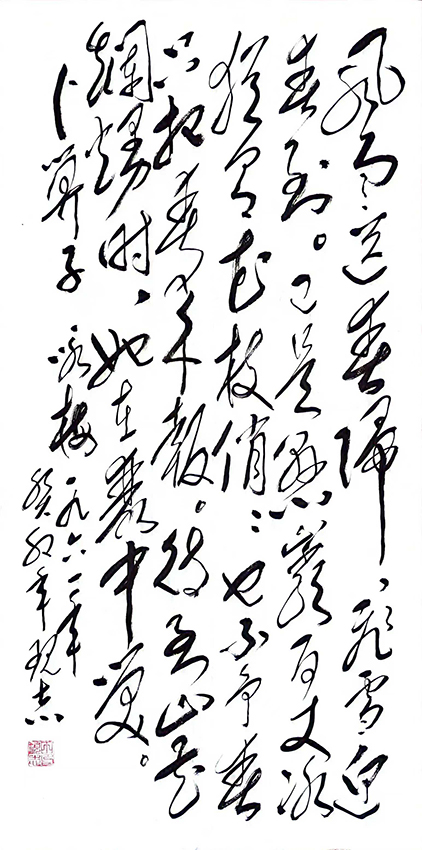 风雨送春归、飞雪迎
春到。已是悬崖百丈冰
犹有花枝俏〻也不争春
只把春来报。待到山花
烂熳时、她在丛中笑。
卜算子 咏梅 一九六一年
癸卯年